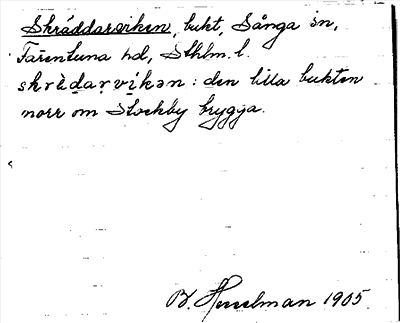 Skräddarviken, bukt, Sånga sn,
Färentuna hd, Sthlm. l.
skrädarvikən : den lilla bukten
norr om Stockby brygga.
B. Hesselman 1905